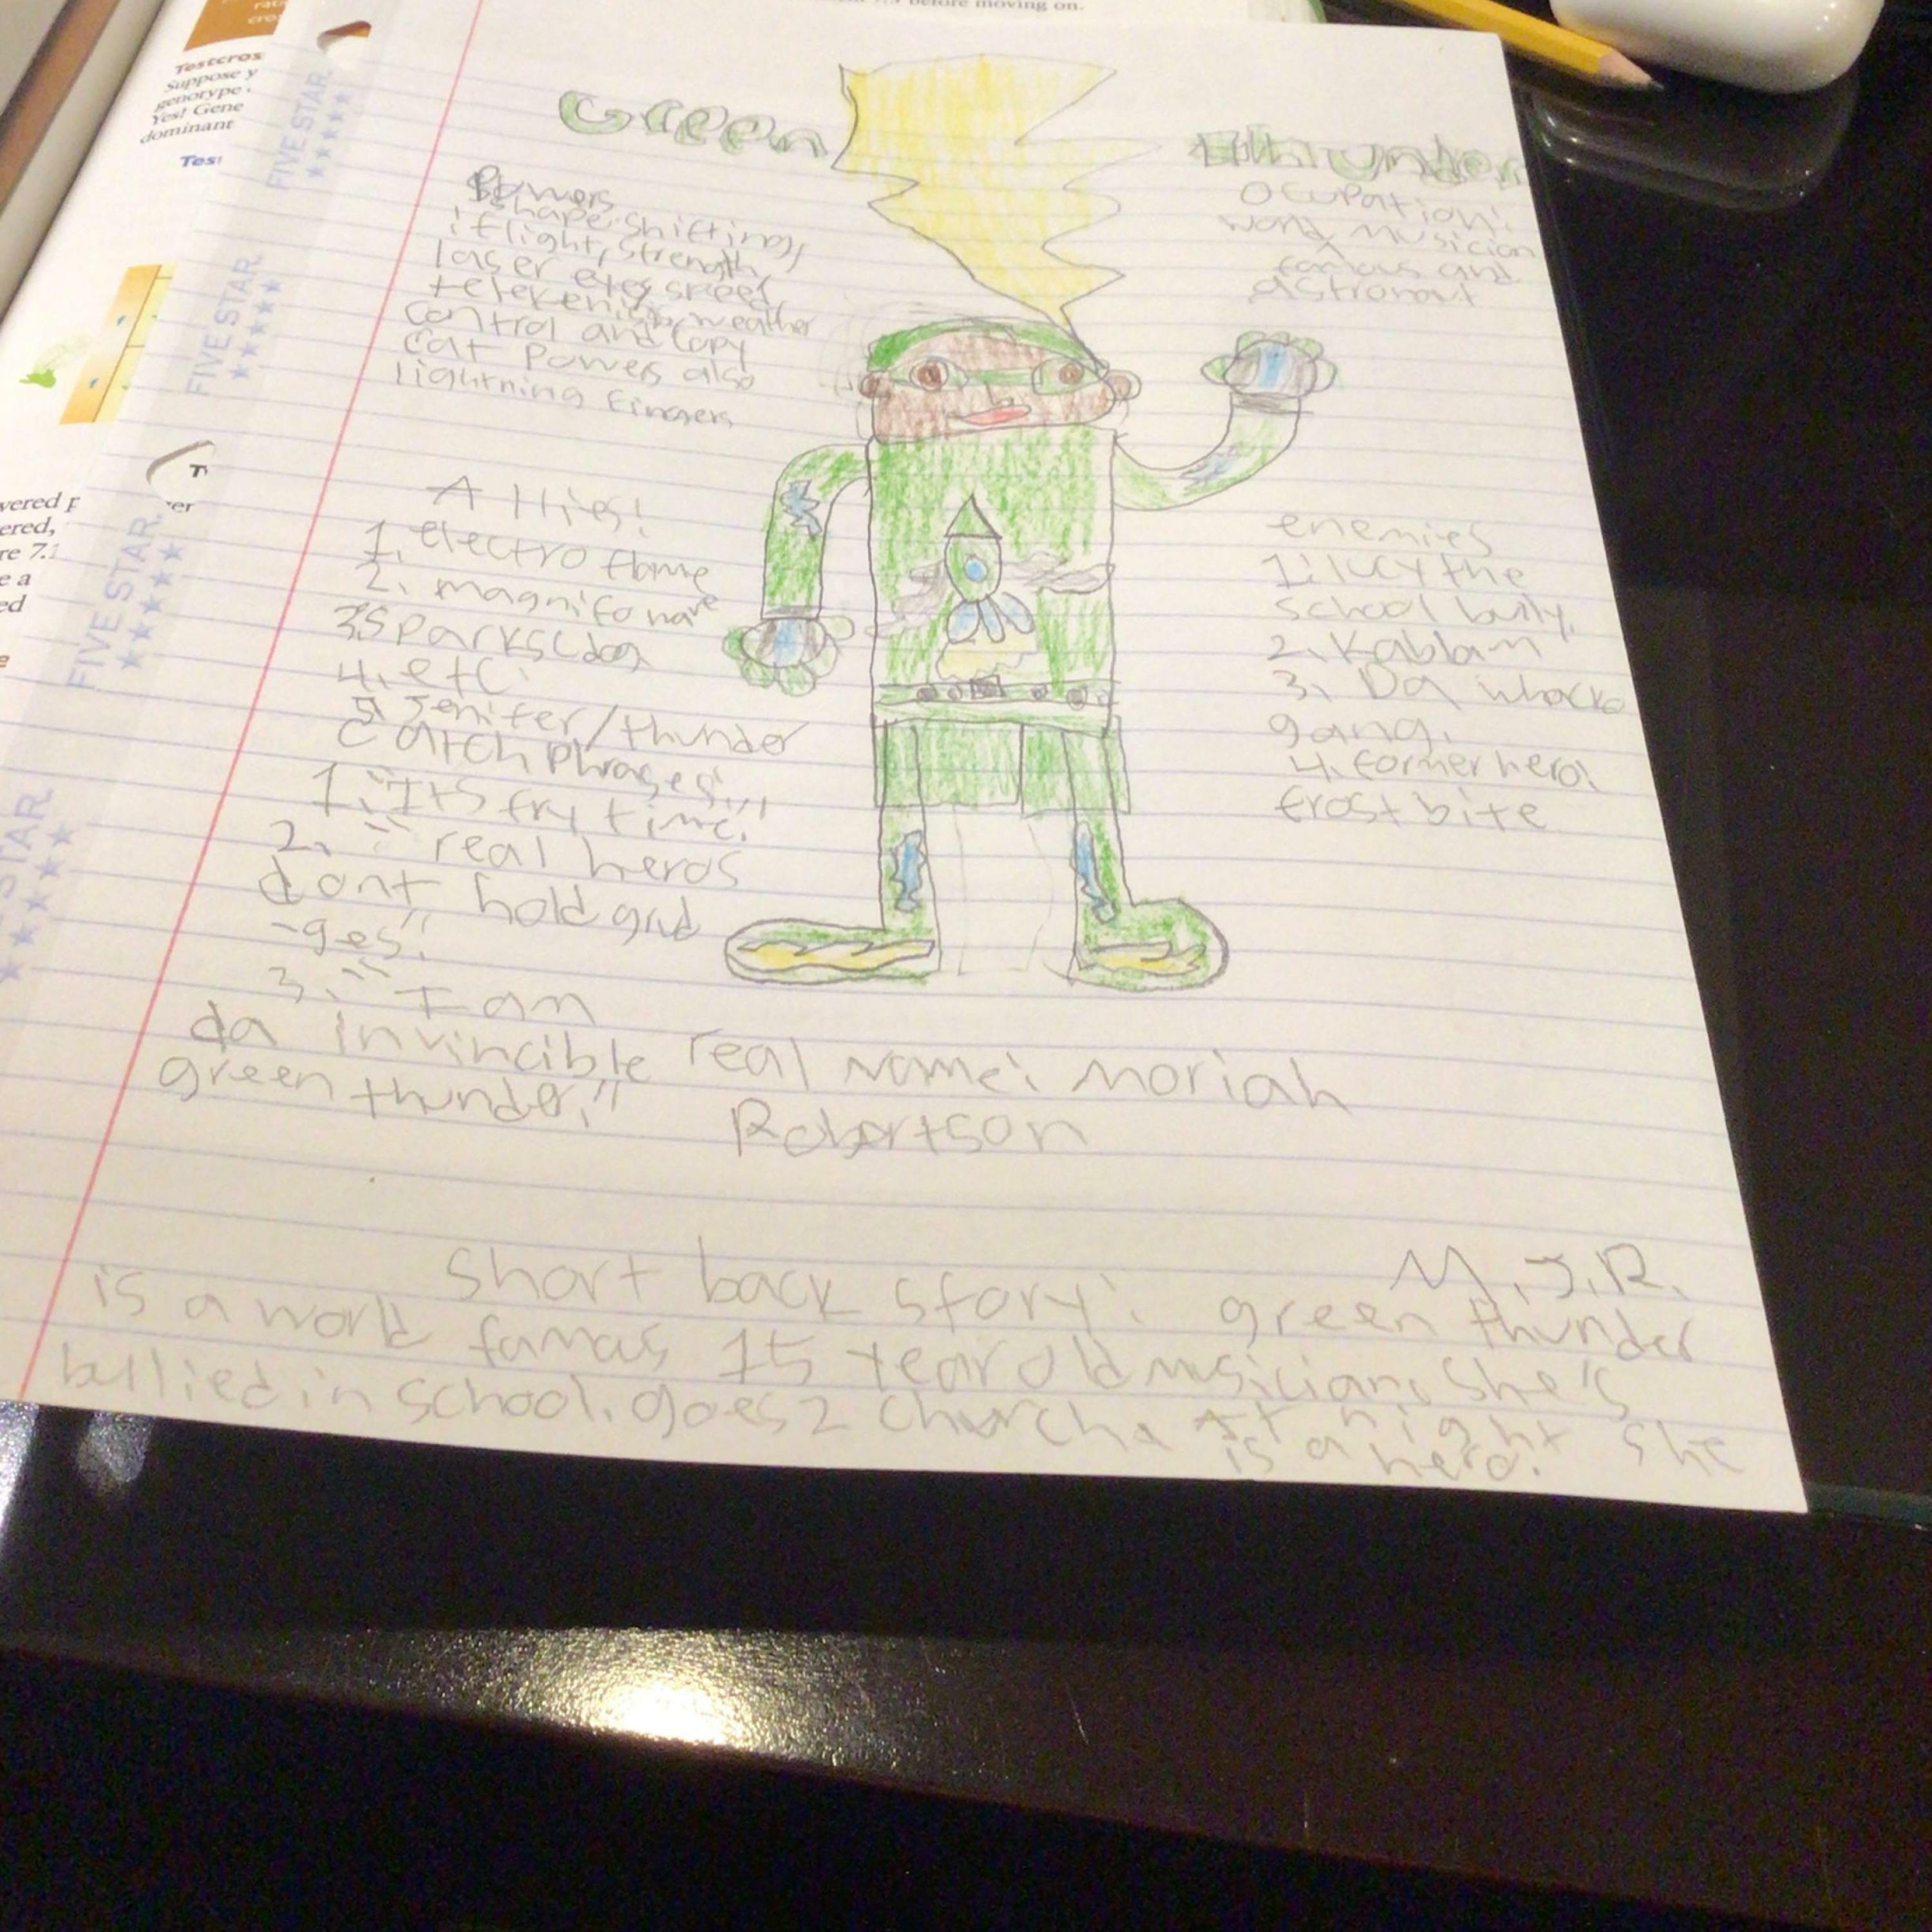 before moving on.
Testcros
Suppose y
genotype
Yes! Gene
dominant
Tes
FIVE STAR
FIVE STAR
FIVE STAR
STAR
vered p
ered,
re 7.1
e a
ed
Green thunder
Powers
shape shifting,
flight, strength,
laser eyes speed
telekenisis, weather
control and copy
cat powers also
lightning fingers
Ocupation:
world musician
famous and
astronaut
Allies!
1. electro flame
2. magnifonare
3. Sparks(dog
4. etc.
5. Jenifer/thunder
Catch phrases:
1. "Its fry time."
2. " real heros
dont hold grud
-ges"
3. " I am
da invincible
green thunder."
enemies
1. lucy the
school bully.
2. Kablam
3. Da whacko
gang.
4. former hero:
frost bite
real name: Moriah
Robertson
M.J.R.
Short back story: green thunder
is a world famas 15 year old musician. She's
bullied in school. goes 2 church. At night she
is a hero.